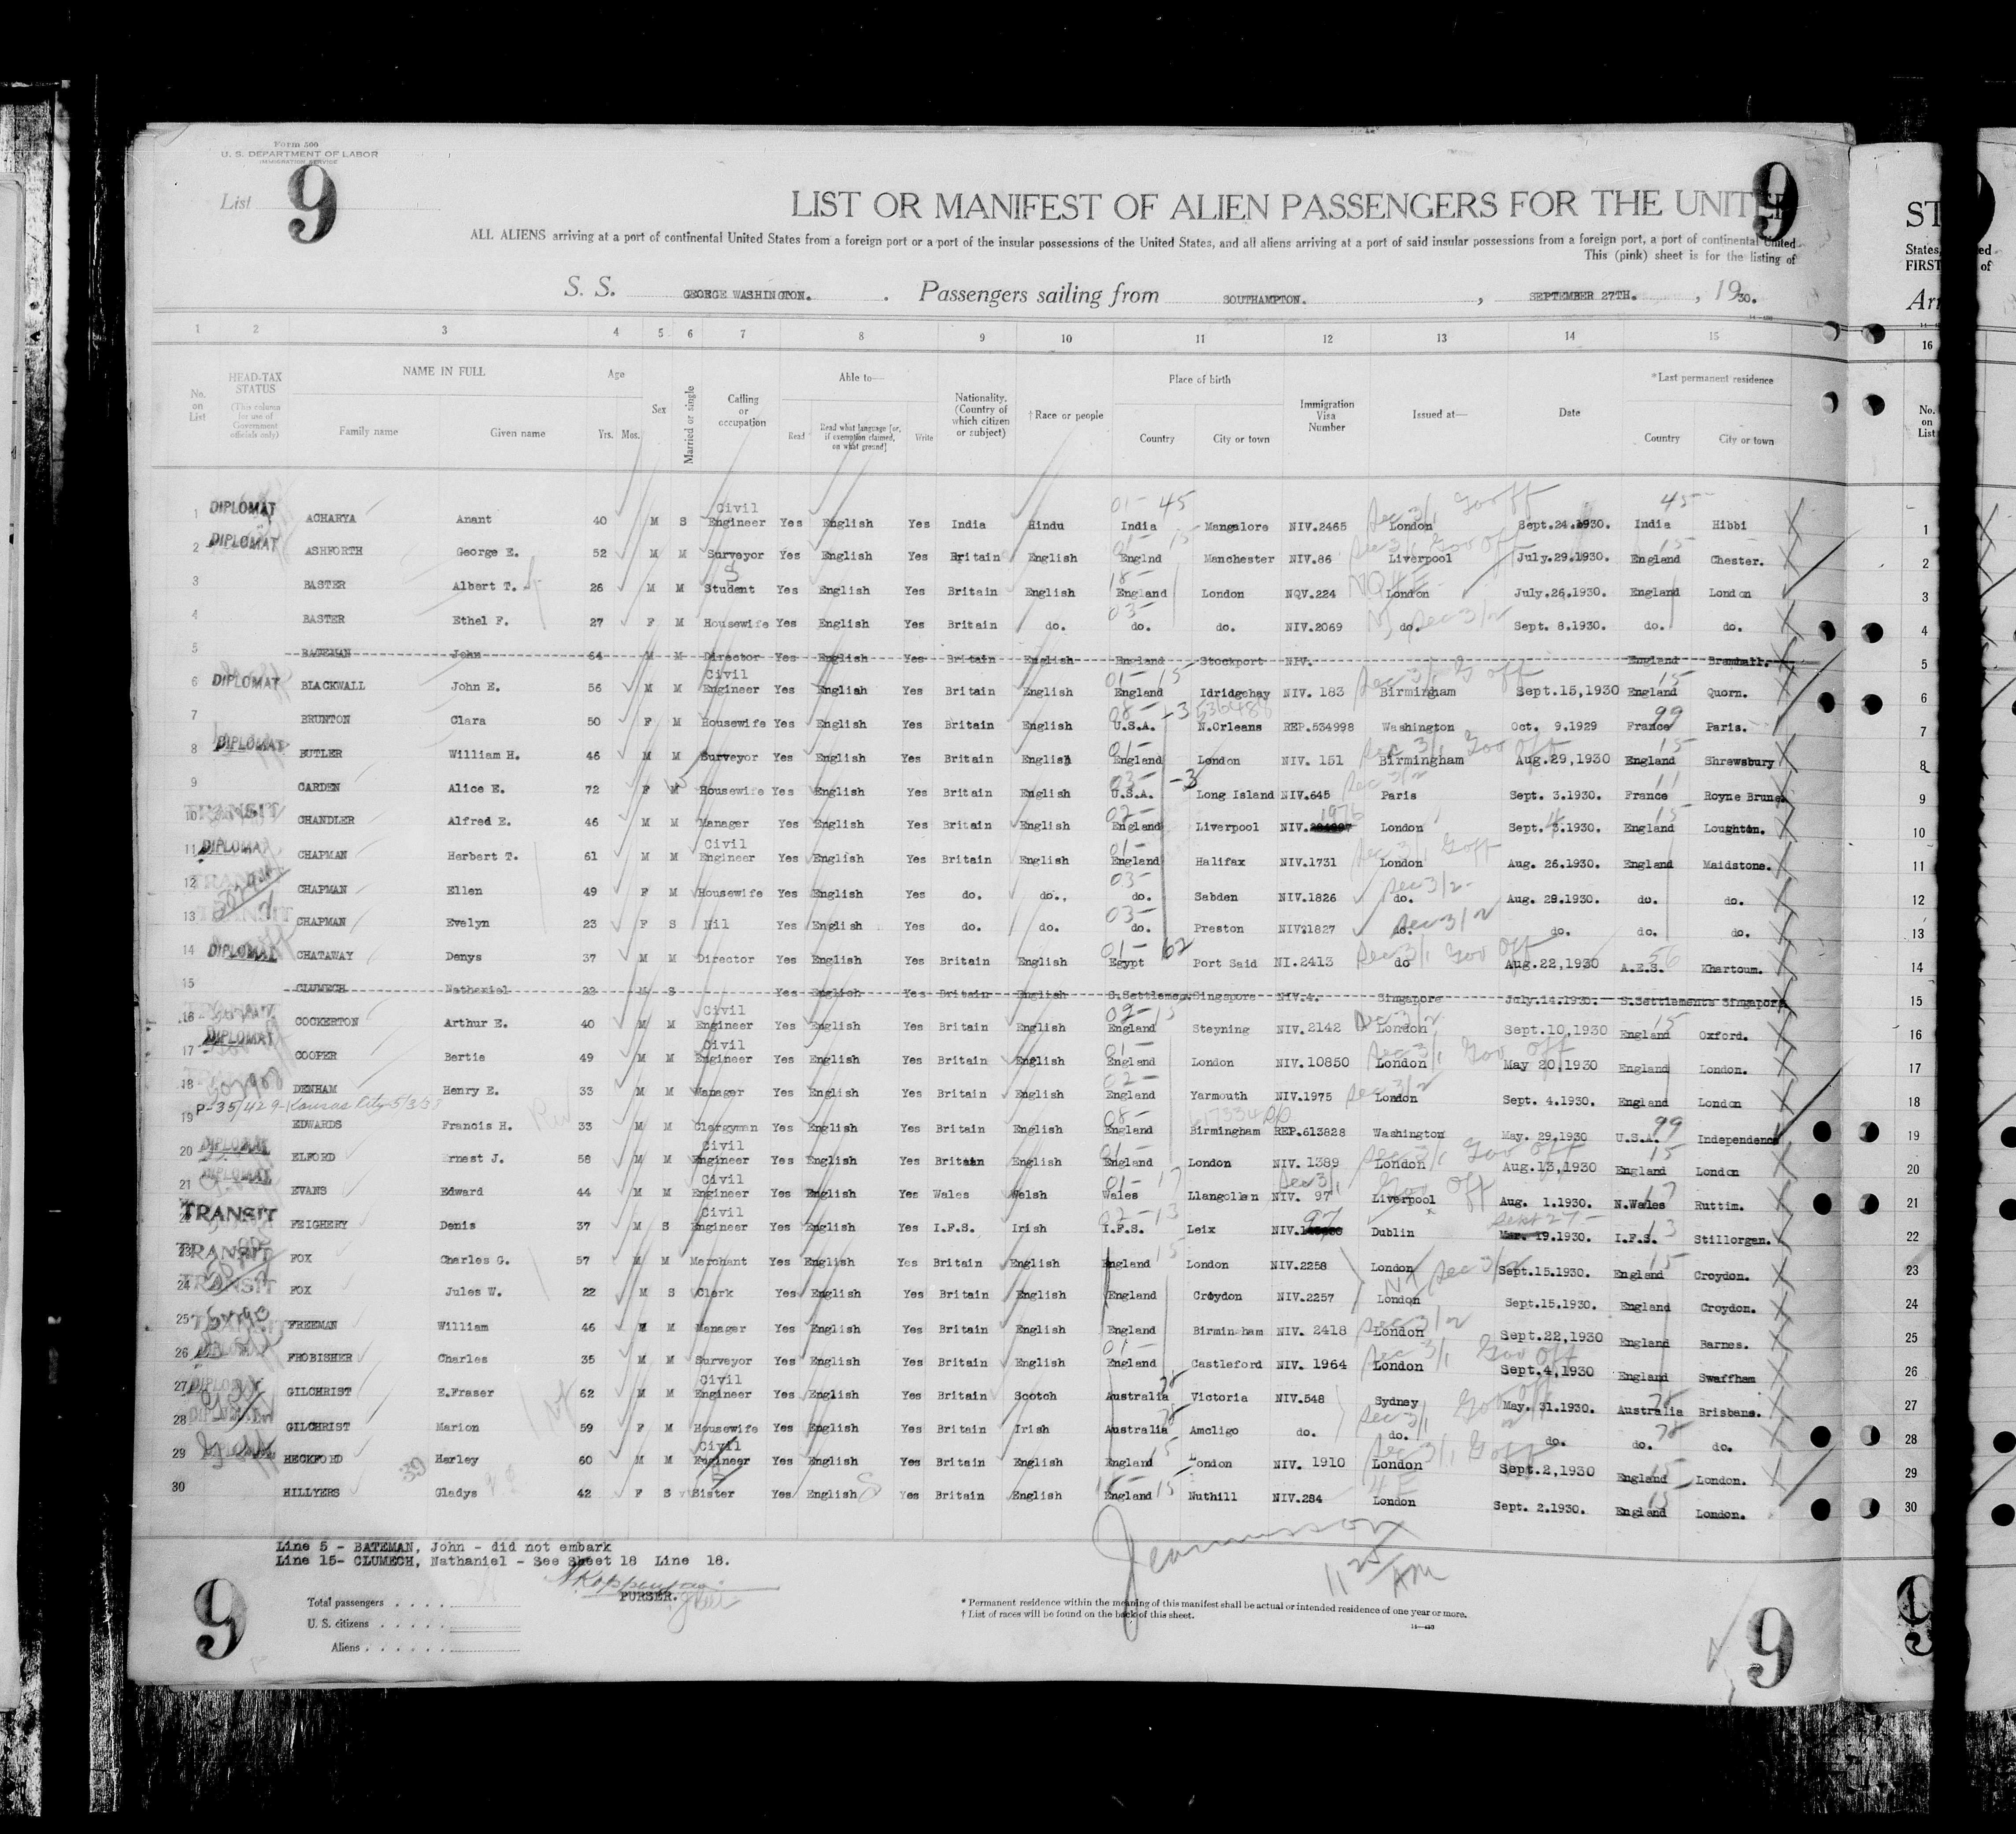 Form 500
U. S. DEPARTMENT OF LABOR
IMMIGRATION SERVICE
List 9 9
LIST OR MANIFEST OF ALIEN PASSENGERS FOR THE UNITE
ALL ALIENS arriving at a port of continental United States from a foreign port or a port of the insular possessions of the United States, and all aliens arriving at a port of said insular possessions from a foreign port, a port of continental United
This (pink) sheet is for the listing of
S. S. GEORGE WASHINGTON. Passengers sailing from SOUTHAMPTON. , SEPTEMBER 27TH. , 1930.
1 2 3 4 5 6 7 8 9 10 11 12 13 14 15
No. on List
HEAD-TAX STATUS (This column for use of Government officials only)
NAME IN FULL Family name Given name
Age Yrs. Mos.
Sex
Married or single
Calling or occupation
Able to— Read Read what language [or, if exemption claimed, on what ground] Write
Nationality. (Country of which citizen or subject)
† Race or people
Place of birth Country City or town
Immigration Visa Number
Issued at—
Date
*Last permanent residence Country City or town
1 DIPLOMAT ACHARYA Anant 40 M S Civil Engineer Yes English Yes India Hindu India Mangalore NIV.2465 London Sept.24.1930. India Hibbi
2 DIPLOMAT ASHFORTH George E. 52 M M Surveyor Yes English Yes Britain English Englnd Manchester NIV.86 Liverpool July.29.1930. England Chester.
3 BASTER Albert T. 26 M M Student Yes English Yes Britain English England London NQV.224 London July.26.1930. England London
4 BASTER Ethel F. 27 F M Housewife Yes English Yes Britain do. do. do. NIV.2069 do. Sept. 8.1930. do. do.
5 BATEMAN John 64 M M Director Yes English Yes Britain English England Stockport NIV. England Bramhall.
6 DIPLOMAT BLACKWALL John E. 56 M M Civil Engineer Yes English Yes Britain English England Idridgehay NIV. 183 Birmingham Sept.15,1930 England Quorn.
7 BRUNTON Clara 50 F M Housewife Yes English Yes Britain English U.S.A. N.Orleans REP.534998 Washington Oct. 9.1929 France Paris.
8 DIPLOMAT BUTLER William H. 46 M M Surveyor Yes English Yes Britain English England London NIV. 151 Birmingham Aug.29,1930 England Shrewsbury
9 CARDEN Alice E. 72 F M Housewife Yes English Yes Britain English U.S.A. Long Island NIV.645 Paris Sept. 3.1930. France Royne Brune.
10 TRANSIT CHANDLER Alfred E. 46 M M Manager Yes English Yes Britain English England Liverpool NIV. 1976 London Sept. 3.1930. England Loughton.
11 DIPLOMAT CHAPMAN Herbert T. 61 M M Civil Engineer Yes English Yes Britain English England Halifax NIV.1731 London Aug. 26.1930. England Maidstone.
12 TRANSIT CHAPMAN Ellen 49 F M Housewife Yes English Yes do. do., do. Sabden NIV.1826 do. Aug. 29.1930. do. do.
13 TRANSIT CHAPMAN Evelyn 23 F S Nil Yes English Yes do. do. do. Preston NIV.1827 do. do. do. do.
14 DIPLOMAT CHATAWAY Denys 37 M M Director Yes English Yes Britain English Egypt Port Said NI.2413 do Aug.22,1930 A.E.S. Khartoum.
15 CLUMECH Nathaniel 22 M S Yes English Yes Britain English S.Settlemen. Singapore NIV.4. Singapore July.14.1930. S.Settlements Singapore
16 COCKERTON Arthur E. 40 M M Civil Engineer Yes English Yes Britain English England Steyning NIV.2142 London Sept.10,1930 England Oxford.
17 DIPLOMAT COOPER Bertie 49 M M Civil Engineer Yes English Yes Britain English England London NIV.10850 London May 20,1930 England London.
18 DENHAM Henry E. 33 M M Manager Yes English Yes Britain English England Yarmouth NIV.1975 London Sept. 4.1930. England London
P-35/429-Kansas City-5/3/33
19 EDWARDS Francis H. 33 M M Clergyman Yes English Yes Britain English England Birmingham REP.613828 Washington May. 29,1930 U.S.A. Independence
20 DIPLOMAT ELFORD Ernest J. 58 M M Civil Engineer Yes English Yes Britain English England London NIV. 1389 London Aug.13,1930 England London
21 DIPLOMAT EVANS Edward 44 M M Civil Engineer Yes English Yes Wales Welsh Wales Llangollen NIV. 97 Liverpool Aug. 1.1930. N.Wales Ruttim.
22 TRANSIT FEIGHERY Denis 37 M S Civil Engineer Yes English Yes I.F.S. Irish I.F.S. Leix NIV. 97 Dublin Mar. 19.1930. Sept 27 I.F.S. Stillorgan.
23 TRANSIT FOX Charles G. 57 M M Merchant Yes English Yes Britain English England London NIV.2258 London Sept.15.1930. England Croydon.
24 TRANSIT FOX Jules W. 22 M S Clerk Yes English Yes Britain English England Croydon NIV.2257 London Sept.15.1930. England Croydon.
25 TRANSIT FREEMAN William 46 M M Manager Yes English Yes Britain English England Birmingham NIV. 2418 London Sept.22,1930 England Barnes.
26 FROBISHER Charles 35 M M Surveyor Yes English Yes Britain English England Castleford NIV. 1964 London Sept.4,1930 England Swaffham
27 DIPLOMAT GILCHRIST E.Fraser 62 M M Civil Engineer Yes English Yes Britain Scotch Australia Victoria NIV.548 Sydney May. 31.1930. Australia Brisbane.
28 DIPLOMAT GILCHRIST Marion 59 F M Housewife Yes English Yes Britain Irish Australia Amcligo do. do. do. do. do.
29 HECKFORD Harley 60 M M Civil Engineer Yes English Yes Britain English England London NIV. 1910 London Sept.2,1930 England London.
30 HILLYERS Gladys 42 F S Sister Yes English Yes Britain English England Nuthill NIV.284 London Sept. 2.1930. England London.
Line 5 - BATEMAN, John - did not embark
Line 15- CLUMECH, Nathaniel - See Sheet 18 Line 18.
PURSER.
11 25 AM
Total passengers
U. S. citizens
Aliens
* Permanent residence within the meaning of this manifest shall be actual or intended residence of one year or more.
† List of races will be found on the back of this sheet.
9 9
ST
States,
FIRST
Arr
16
No. on List
1
2
3
4
5
6
7
8
9
10
11
12
13
14
15
16
17
18
19
20
21
22
23
24
25
26
27
28
29
30